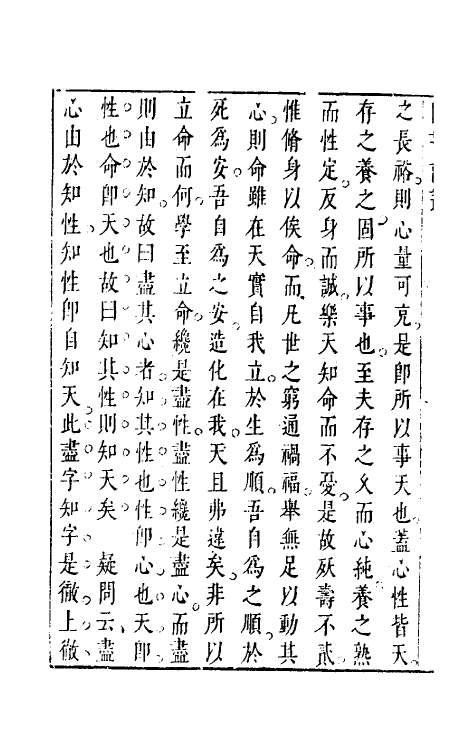 之長裕則心量可克是卽所以事天也蓋心性皆天
存之養之固所以事也至夫存之久而心純養之熟
而性定反身而誠樂天知命而不憂是故殀壽不貳
惟脩身以俟命而凡世之窮通禍福舉無足以動其
心則命雖在天實自我立於生為順吾自為之順於
死為安吾自為之安造化在我天且弗違矣非所以
立命而何學至立命纔是盡性盡性纔是盡心而盡
則由於知故曰盡其心者知其性也性卽心也天卽
性也命卽天也故曰知其性則知天矣　疑問云盡
心由於知性知性卽自知天此盡字知字是徹上徹